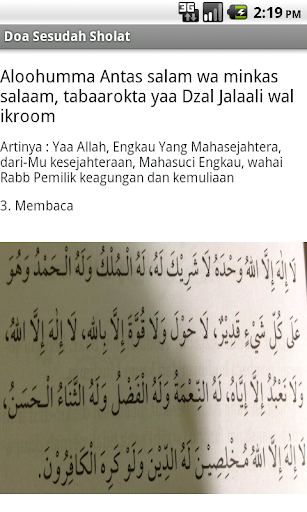 3G
2:19 PM
Doa Sesudah Sholat
Aloohumma Antas salam wa minkas
salaam, tabaarokta yaa Dzal Jalaali wal
ikroom
Artinya : Yaa Allah, Engkau Yang Mahasejahtera,
dari-Mu kesejahteraan, Mahasuci Engkau, wahai
Rabb Pemilik keagungan dan kemuliaan
3. Membaca
لَا إِلٰهَ إِلَّا اللهُ وَحْدَهُ لَا شَرِيْكَ لَهُ، لَهُ الْمُلْكُ وَلَهُ الْحَمْدُ وَهُوَ
عَلَى كُلِّ شَيْءٍ قَدِيْرٌ، لَا حَوْلَ وَلَا قُوَّةَ إِلَّا بِاللهِ، لَا إِلٰهَ إِلَّا اللهُ،
وَلَا نَعْبُدُ إِلَّا إِيَّاهُ، لَهُ النِّعْمَةُ وَلَهُ الْفَضْلُ وَلَهُ الثَّنَاءُ الْحَسَنُ،
لَا إِلٰهَ إِلَّا اللهُ مُخْلِصِيْنَ لَهُ الدِّيْنَ وَلَوْ كَرِهَ الْكَافِرُوْنَ.